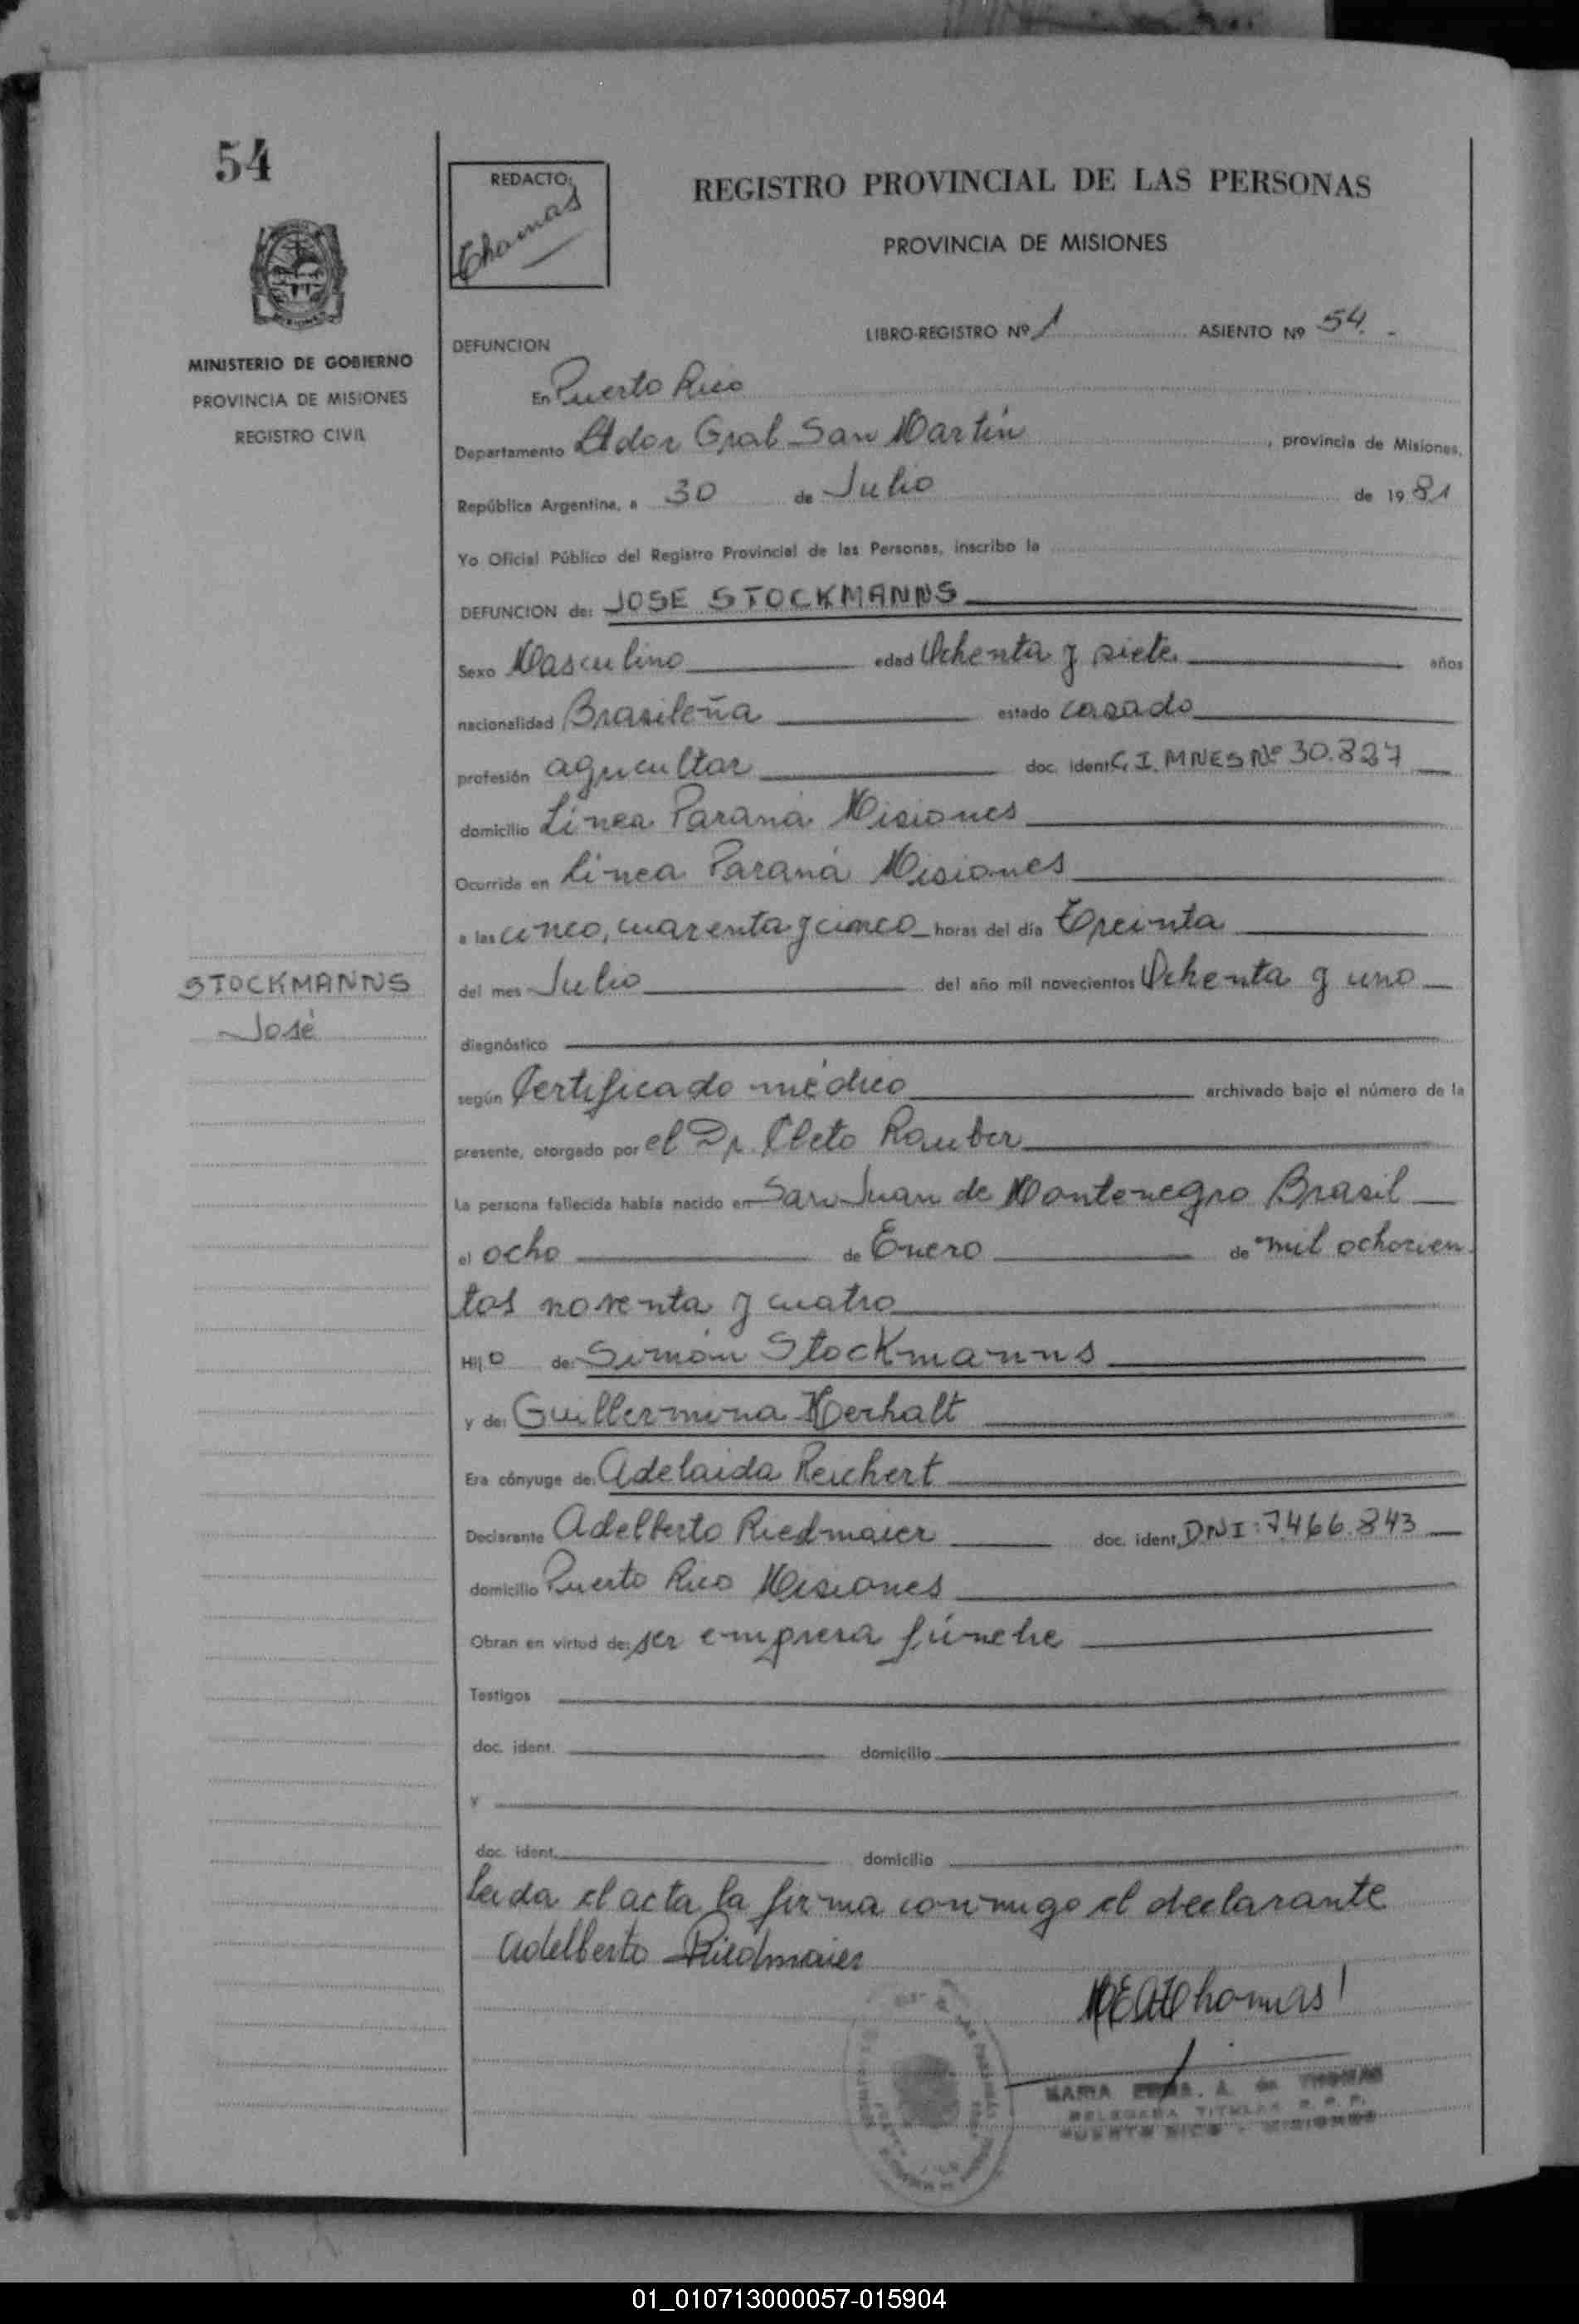 54
REDACTO:
Thomas
REGISTRO PROVINCIAL DE LAS PERSONAS
PROVINCIA DE MISIONES
MINISTERIO DE GOBIERNO
PROVINCIA DE MISIONES
REGISTRO CIVIL
LIBRO-REGISTRO Nº 1 ASIENTO Nº 54.-
DEFUNCION
En Puerto Rico
Departamento Ltdor Gral San Martín, provincia de Misiones,
República Argentina, a 30 de Julio de 1981
Yo Oficial Público del Registro Provincial de las Personas, inscribo la
DEFUNCION de: JOSE STOCKMANNS
Sexo Masculino edad Ochenta y siete años
nacionalidad Brasileña estado casado
profesión agricultor doc. ident. C.I. MNES Nº 30.827
domicilio Línea Paraná Misiones
Ocurrida en línea Paraná Misiones
a las cinco, cuarenta y cinco horas del día Treinta
del mes Julio del año mil novecientos Ochenta y uno
STOCKMANNS
José
diagnóstico
según Certificado médico archivado bajo el número de la
presente, otorgado por el Dr. Cleto Rauber
La persona fallecida había nacido en San Juan de Montenegro Brasil
el ocho de Enero de mil ochocien
tos noventa y cuatro
Hijo de: Simón Stockmanns
y de: Guillermina Merhalt
Era cónyuge de: Adelaida Reichert
Declarante Adelberto Riedmaier doc. ident. DNI: 7.466.843
domicilio Puerto Rico Misiones
Obran en virtud de: ser empresa fúnebre
Testigos
doc. ident. domicilio
y
doc. ident. domicilio
Leída el acta la firma conmigo el declarante
Adelberto Riedmaier
Thomas
MARIA A. de THOMAS
DELEGADA TITULAR R. P. P.
PUERTO RICO - MISIONES
01_010713000057-015904